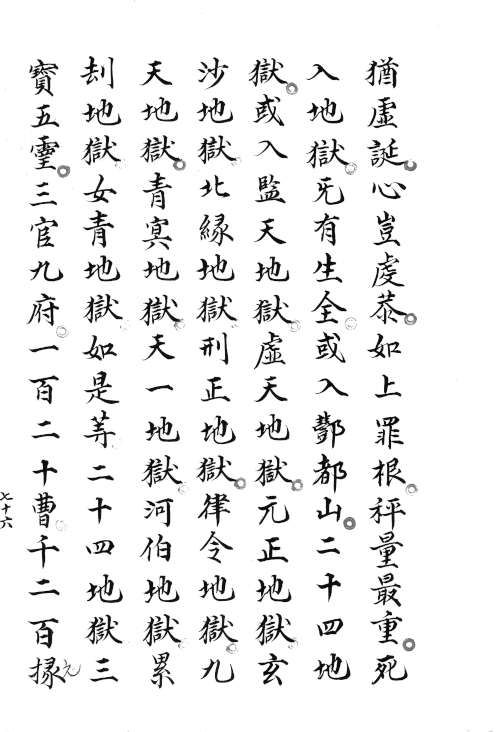 猶虛誕心豈虔恭如上罪根秤量最重死
入地獄旡有生全或入酆都山二十四地
獄或入監天地獄虛天地獄元正地獄玄
沙地獄北緣地獄刑正地獄律令地獄九
天地獄青冥地獄天一地獄河伯地獄累
刦地獄女青地獄如是荨二十四地獄三
寶五靈三官九府一百二十曹千二百掾
七十六